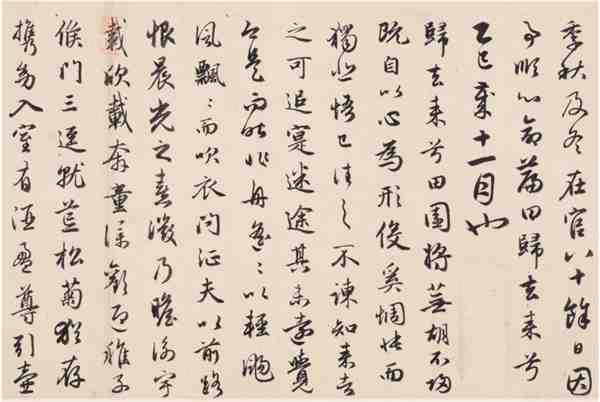 季秋及冬在官八十餘日因
事順心命篇曰歸去來兮
乙巳歲十一月也
歸去來兮田園將蕪胡不歸
既自以心為形役奚惆悵而
獨悲悟已往之不諫知來者
之可追寔迷途其未遠覺
今是而昨非舟遙〻以輕颺
風飄〻而吹衣問征夫以前路
恨晨光之熹微乃瞻衡宇
載欣載奔童僕歡迎稚子
候門三逕就荒松菊猶存
攜幼入室有酒盈尊引壺